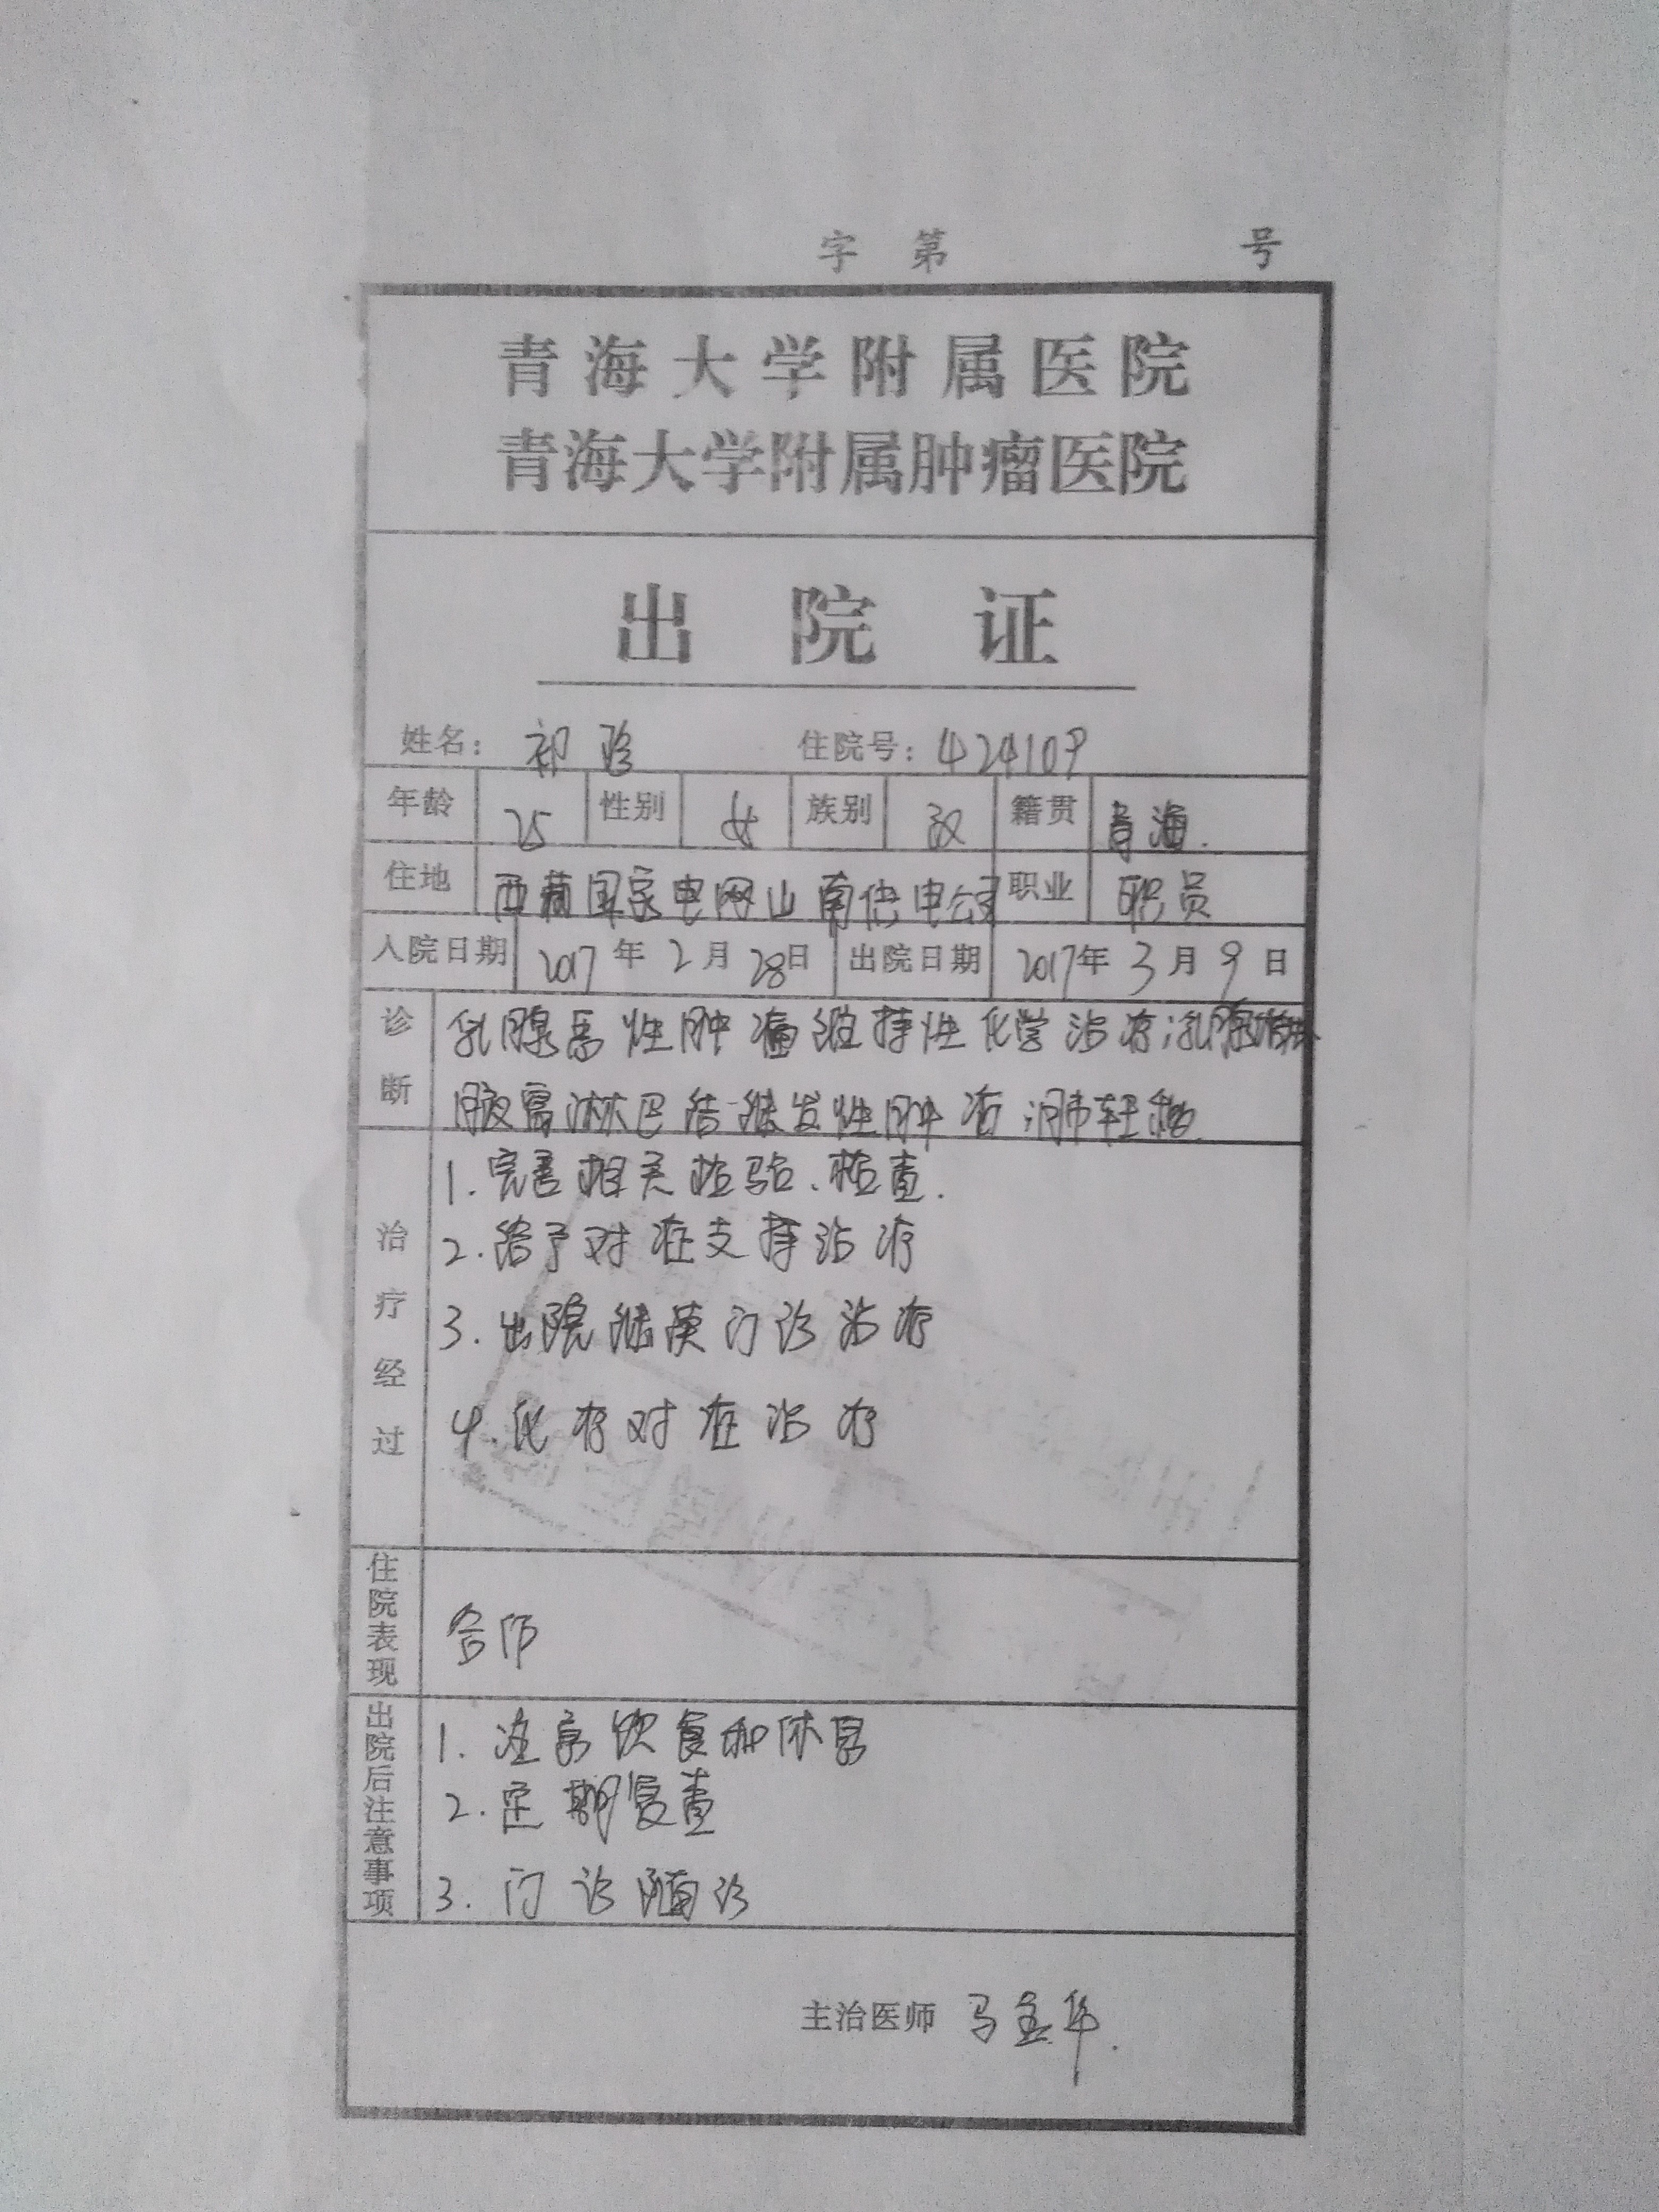 字 第 号
青海大学附属医院
青海大学附属肿瘤医院
出院证
姓名： 祁珍 住院号：424109
年龄 25 性别 女 族别 汉 籍贯 青海.
住地 西藏国家电网山南供电公司 职业 职员
入院日期 2017年2月28日 出院日期 2017年3月9日
诊断 乳腺恶性肿瘤维持性化学治疗;乳腺
腋窝淋巴结继发性肿瘤 肺转移
治疗经过
1.完善相关检验、检查.
2.给予对症支持治疗
3.出院继续门诊治疗
4.化疗对症治疗
住院表现 合作
出院后注意事项
1.注意饮食和休息
2.定期复查
3.门诊随诊
主治医师 马金华.